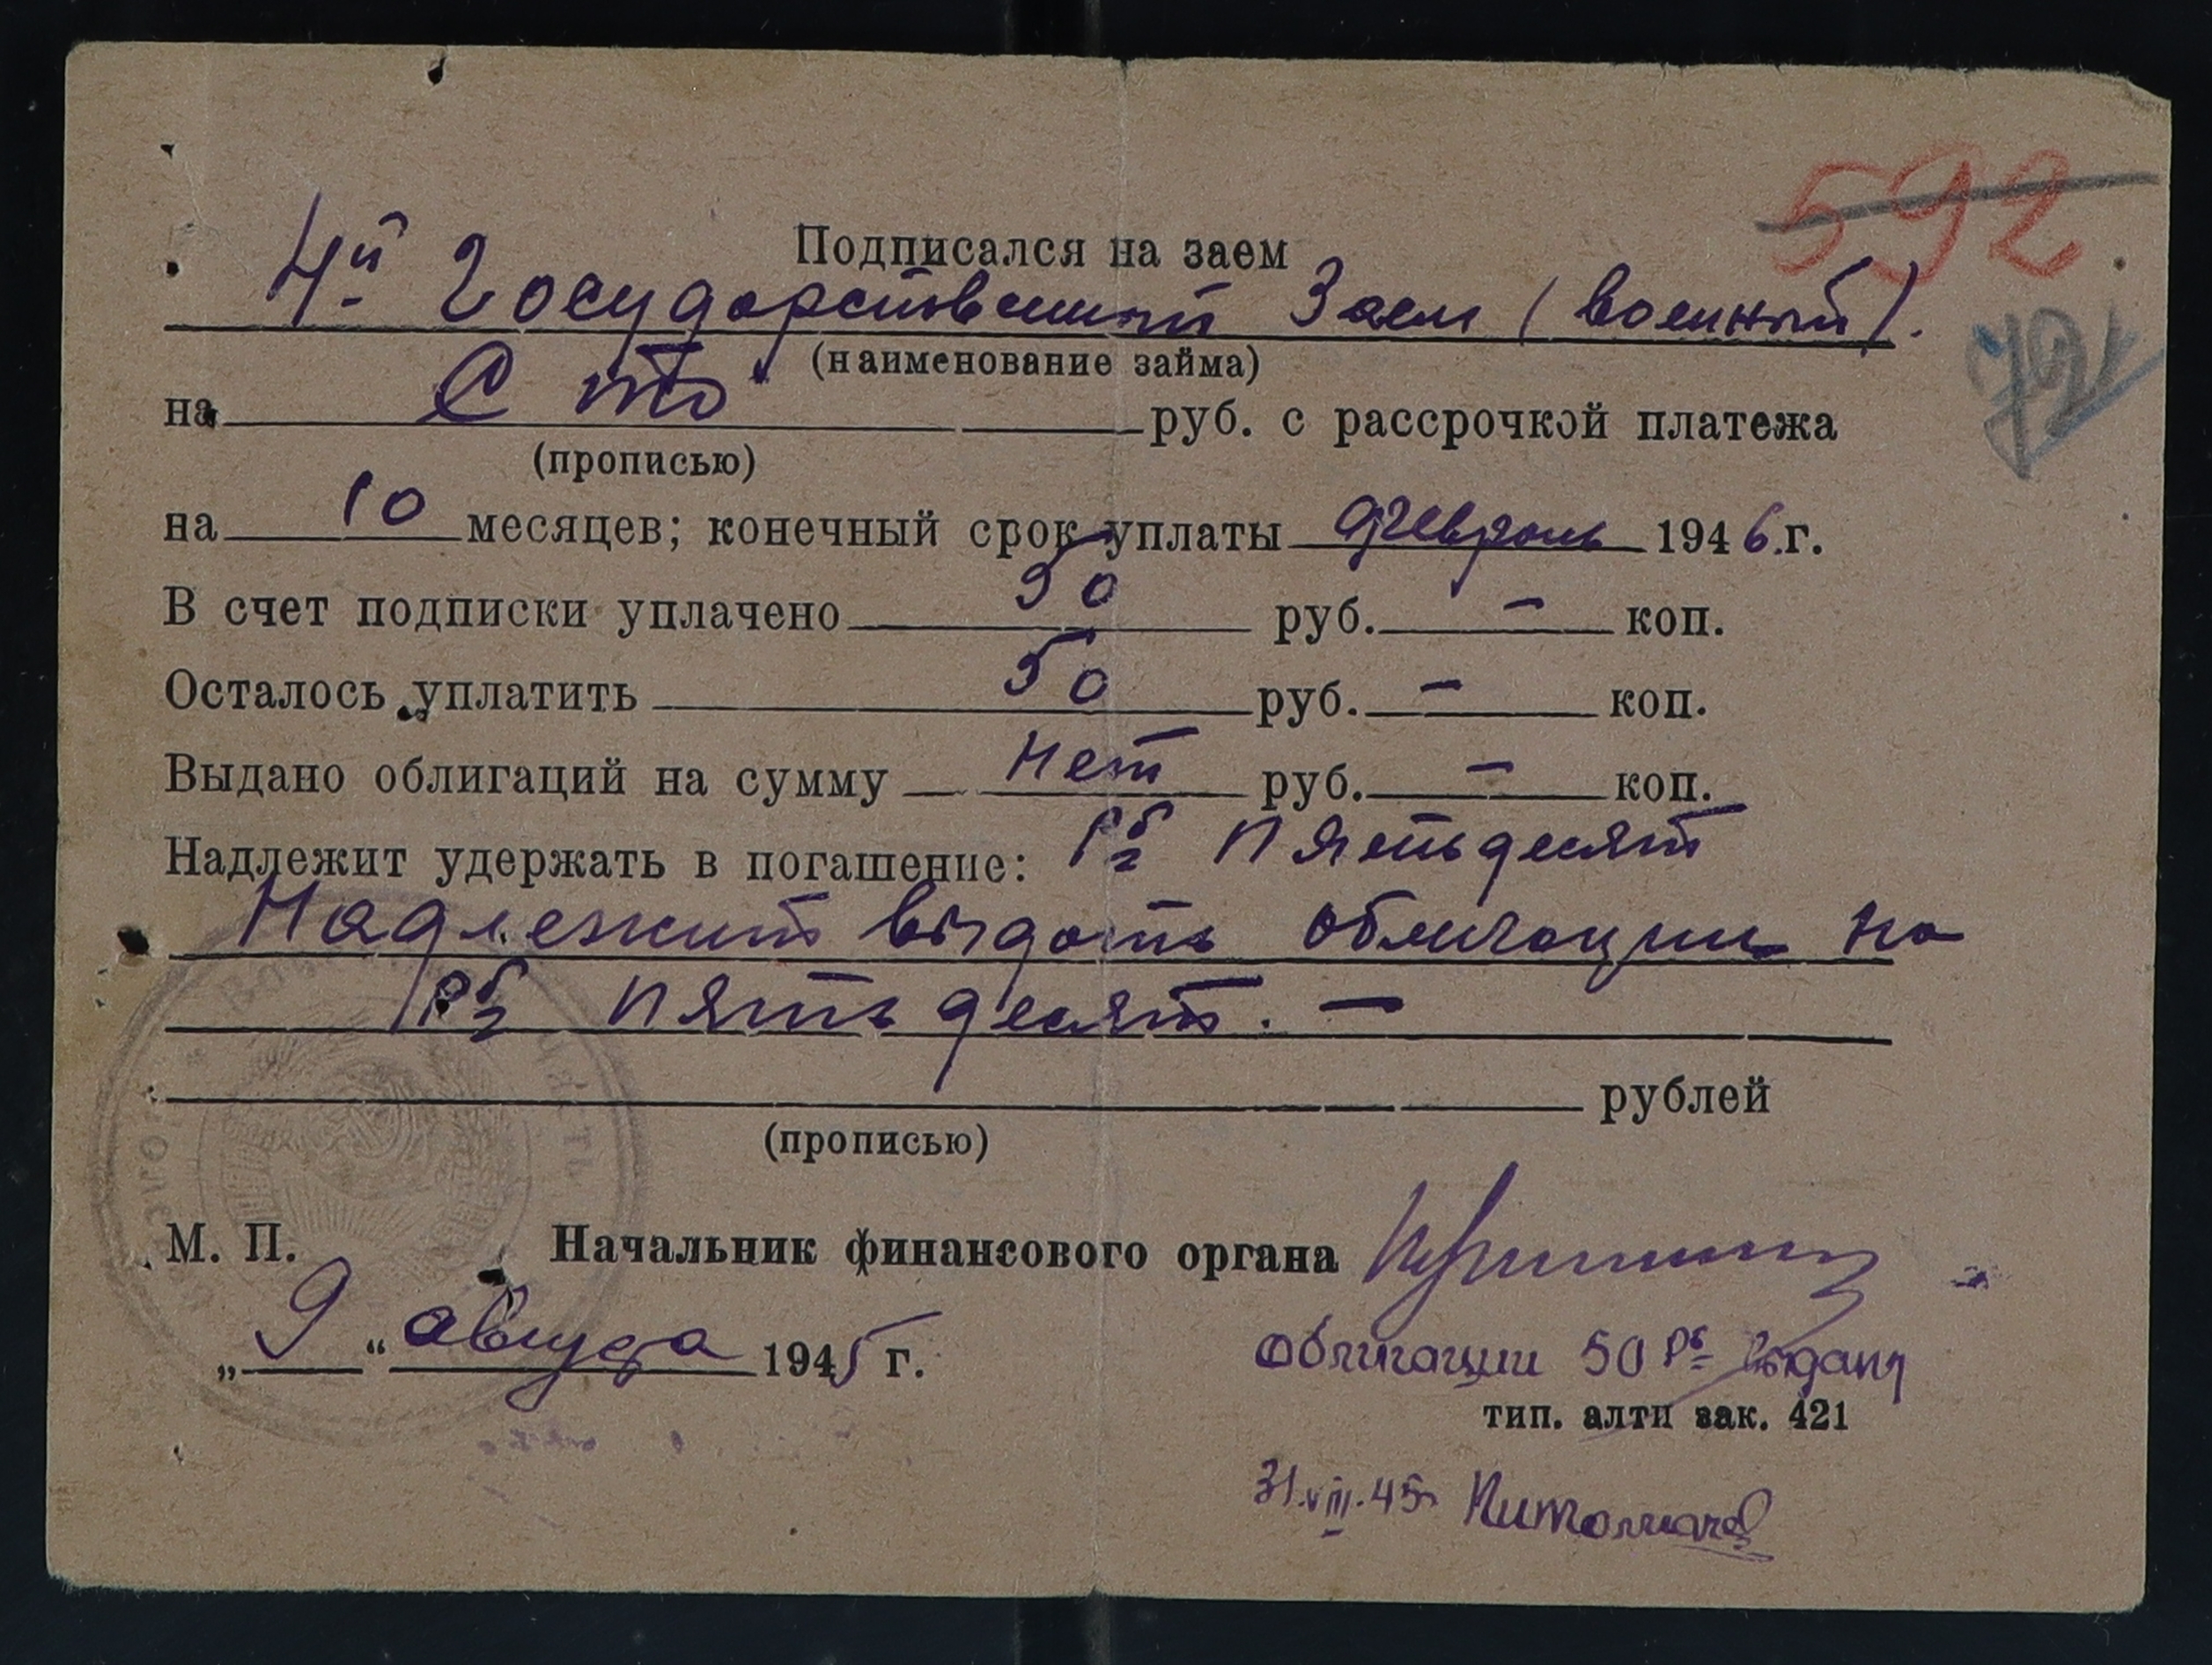 592
Подписался на заем
4й Государственный Заем (военный).
721
(наименование займа)
на Сто руб. с рассрочкой платежа
(прописью)
на 10 месяцев; конечный срок уплаты февраль 1946.г.
В счет подписки уплачено 50 руб. – коп.
Осталось уплатить 50 руб. – коп.
Выдано облигаций на сумму нет руб. – коп.
Надлежит удержать в погашение: Рб Пятьдесят
Надлежит выдать облигации на
Рб пятьдесят. –
рублей
(прописью)
М. П. Начальник финансового органа
„ 9 “ августа 1945 г.
Облигации 50 Рб выдану
тип. алти зак. 421
31.VIII.45